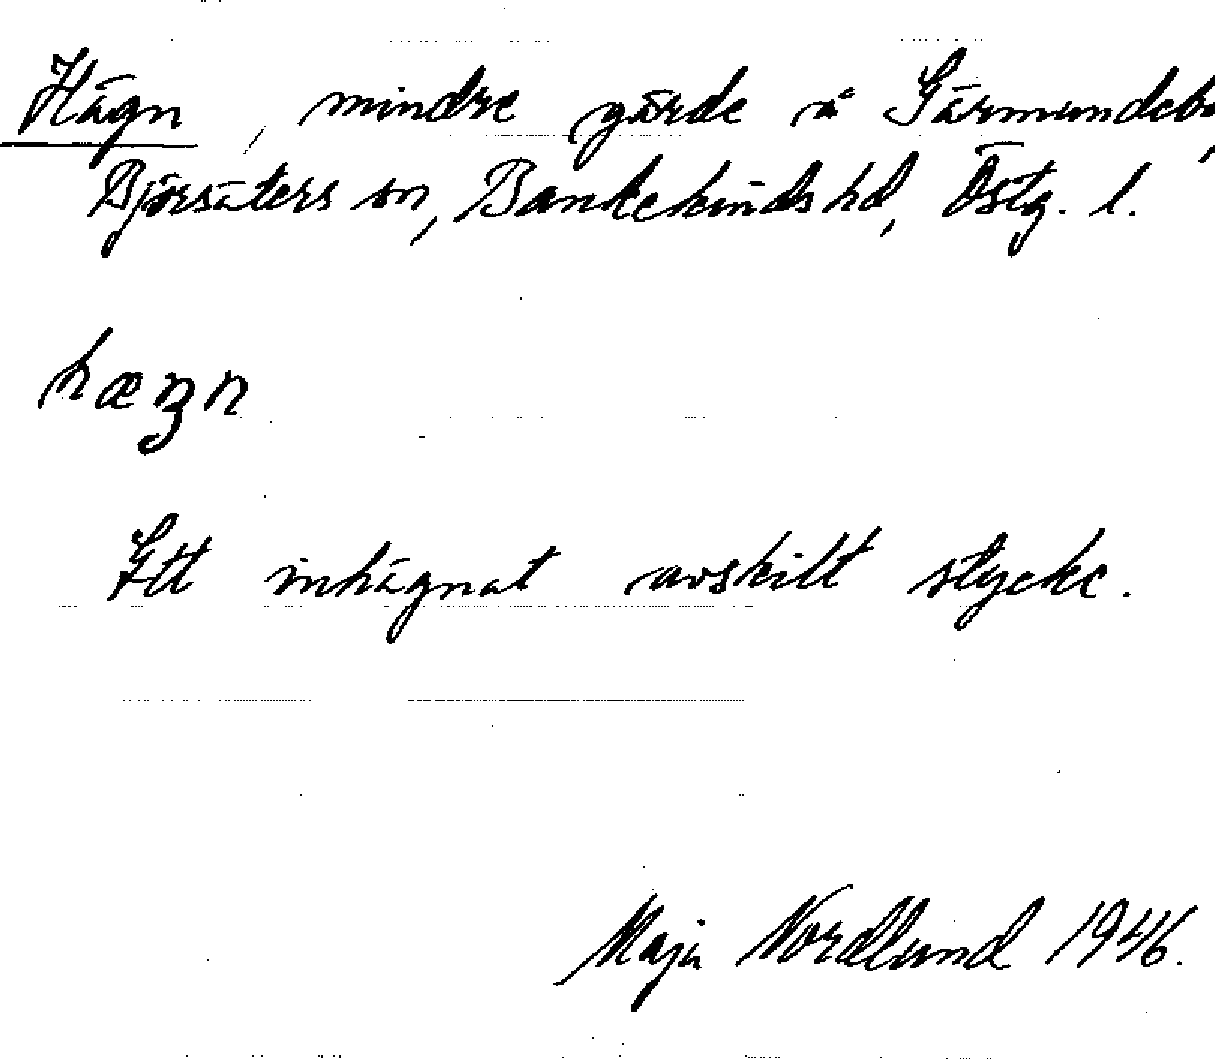 Hägn, mindre gärde å Särmundebo,
Björsäters sn, Bankekinds hd, Östg. l.
hæŋn
Ett inhägnat avskilt stycke.
Maja Nordlund 1946.